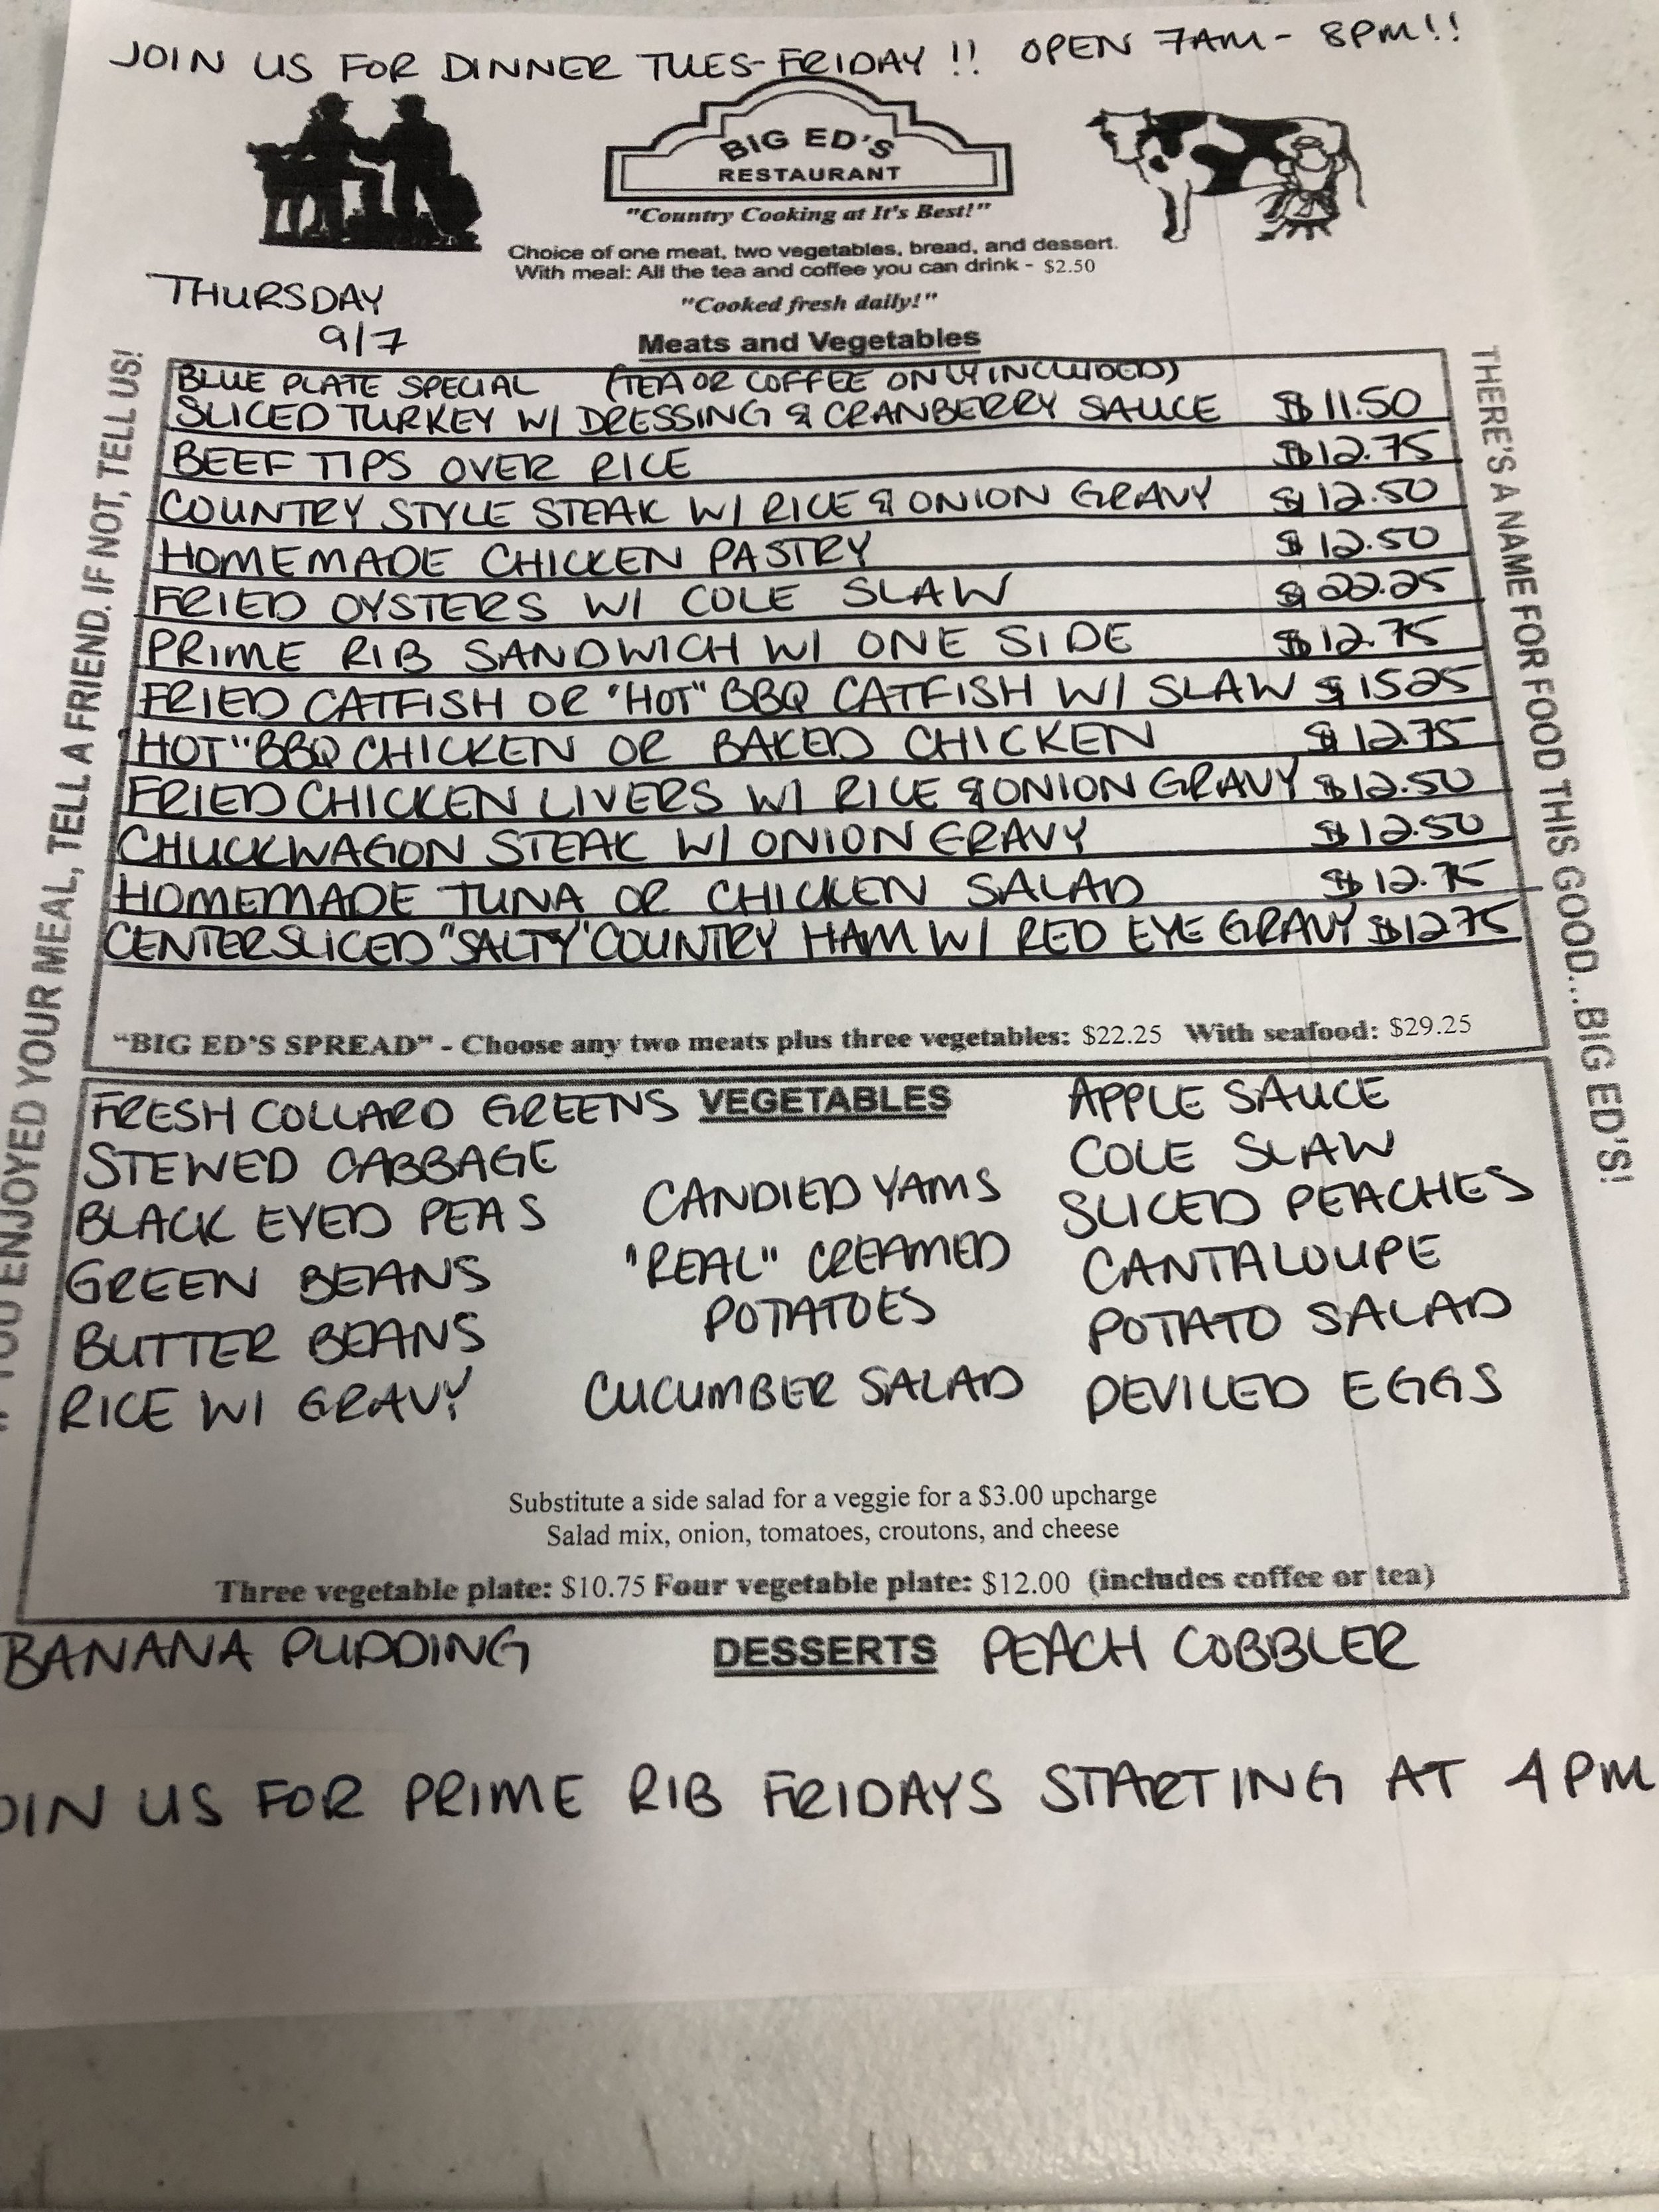 JOIN US FOR DINNER TUES-FRIDAY !! OPEN 7AM - 8PM!!
BIG ED'S
RESTAURANT
"Country Cooking at It's Best!"
Choice of one meat, two vegetables, bread, and dessert.
With meal: All the tea and coffee you can drink - $2.50
"Cooked fresh daily!"
THURSDAY
9/7
Meats and Vegetables
BLUE PLATE SPECIAL (TEA OR COFFEE ONLY INCLUDED)
SLICED TURKEY W/ DRESSING & CRANBERRY SAUCE $11.50
BEEF TIPS OVER RICE $12.75
COUNTRY STYLE STEAK W/ RICE & ONION GRAVY $12.50
HOMEMADE CHICKEN PASTRY $12.50
FRIED OYSTERS W/ COLE SLAW $22.25
PRIME RIB SANDWICH W/ ONE SIDE $12.75
FRIED CATFISH OR "HOT" BBQ CATFISH W/ SLAW $1525
"HOT" BBQ CHICKEN OR BAKED CHICKEN $12.75
FRIED CHICKEN LIVERS W/ RICE & ONION GRAVY $12.50
CHUCKWAGON STEAK W/ ONION GRAVY $12.50
HOMEMADE TUNA OR CHICKEN SALAD $12.75
CENTER SLICED "SALTY" COUNTRY HAM W/ RED EYE GRAVY $1275
"BIG ED'S SPREAD" - Choose any two meats plus three vegetables: $22.25 With seafood: $29.25
VEGETABLES
FRESH COLLARD GREENS
STEWED CABBAGE
BLACK EYED PEAS
GREEN BEANS
BUTTER BEANS
RICE W/ GRAVY
CANDIED YAMS
"REAL" CREAMED
POTATOES
CUCUMBER SALAD
APPLE SAUCE
COLE SLAW
SLICED PEACHES
CANTALOUPE
POTATO SALAD
DEVILED EGGS
Substitute a side salad for a veggie for a $3.00 upcharge
Salad mix, onion, tomatoes, croutons, and cheese
Three vegetable plate: $10.75 Four vegetable plate: $12.00 (includes coffee or tea)
BANANA PUDDING DESSERTS PEACH COBBLER
OIN US FOR PRIME RIB FRIDAYS STARTING AT 4PM
YOU ENJOYED YOUR MEAL, TELL A FRIEND. IF NOT, TELL US!
THERE'S A NAME FOR FOOD THIS GOOD...BIG ED'S!